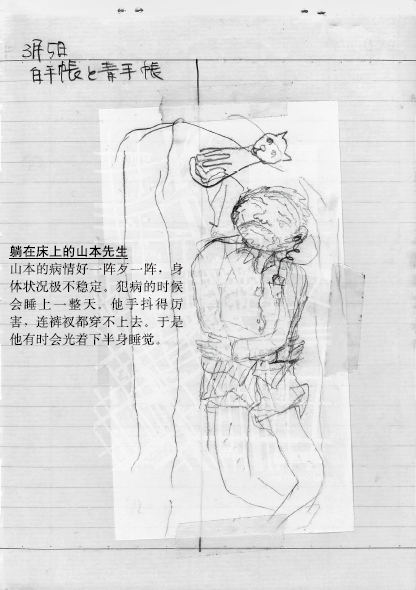 3月5日
白手帳と青手帳
躺在床上的山本先生
山本的病情好一阵歹一阵，身
体状况极不稳定。犯病的时候
会睡上一整天。他手抖得厉
害，连裤衩都穿不上去。于是
他有时会光着下半身睡觉。